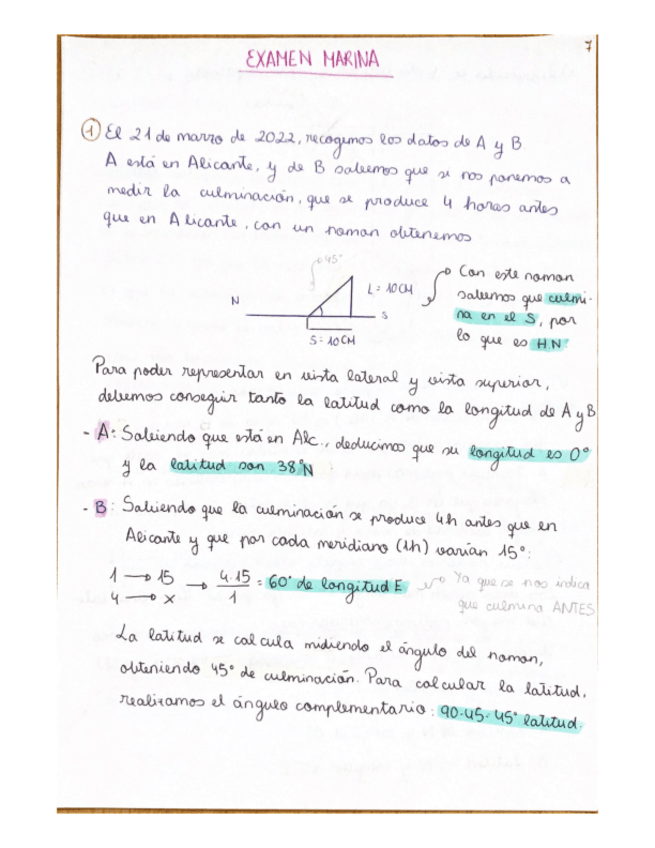 7
EXAMEN MARINA
① El 21 de marzo de 2022, recogemos los datos de A y B
A está en Alicante, y de B sabemos que si nos ponemos a
medir la culminación, que se produce 4 horas antes
que en Alicante, con un nomon obtenemos
45°
L= 10CM
N
S
S= 10CM
Con este nomon
sabemos que culmi-
na en el S, por
lo que es HN
Para poder representar en vista lateral y vista superior,
debemos conseguir tanto la latitud como la longitud de A y B
- A: Sabiendo que está en Alc., deducimos que su longitud es 0°
y la latitud son 38°N
- B: Sabiendo que la culminación se produce 4h antes que en
Alicante y que por cada meridiano (1h) varían 15°:
1 → 15 → 4.15 = 60° de longitud E Ya que se nos indica
4 → x 1 que culmina ANTES
La latitud se calcula midiendo el ángulo del nomon,
obteniendo 45° de culminación. Para calcular la latitud,
realizamos el ángulo complementario: 90-45= 45° latitud.